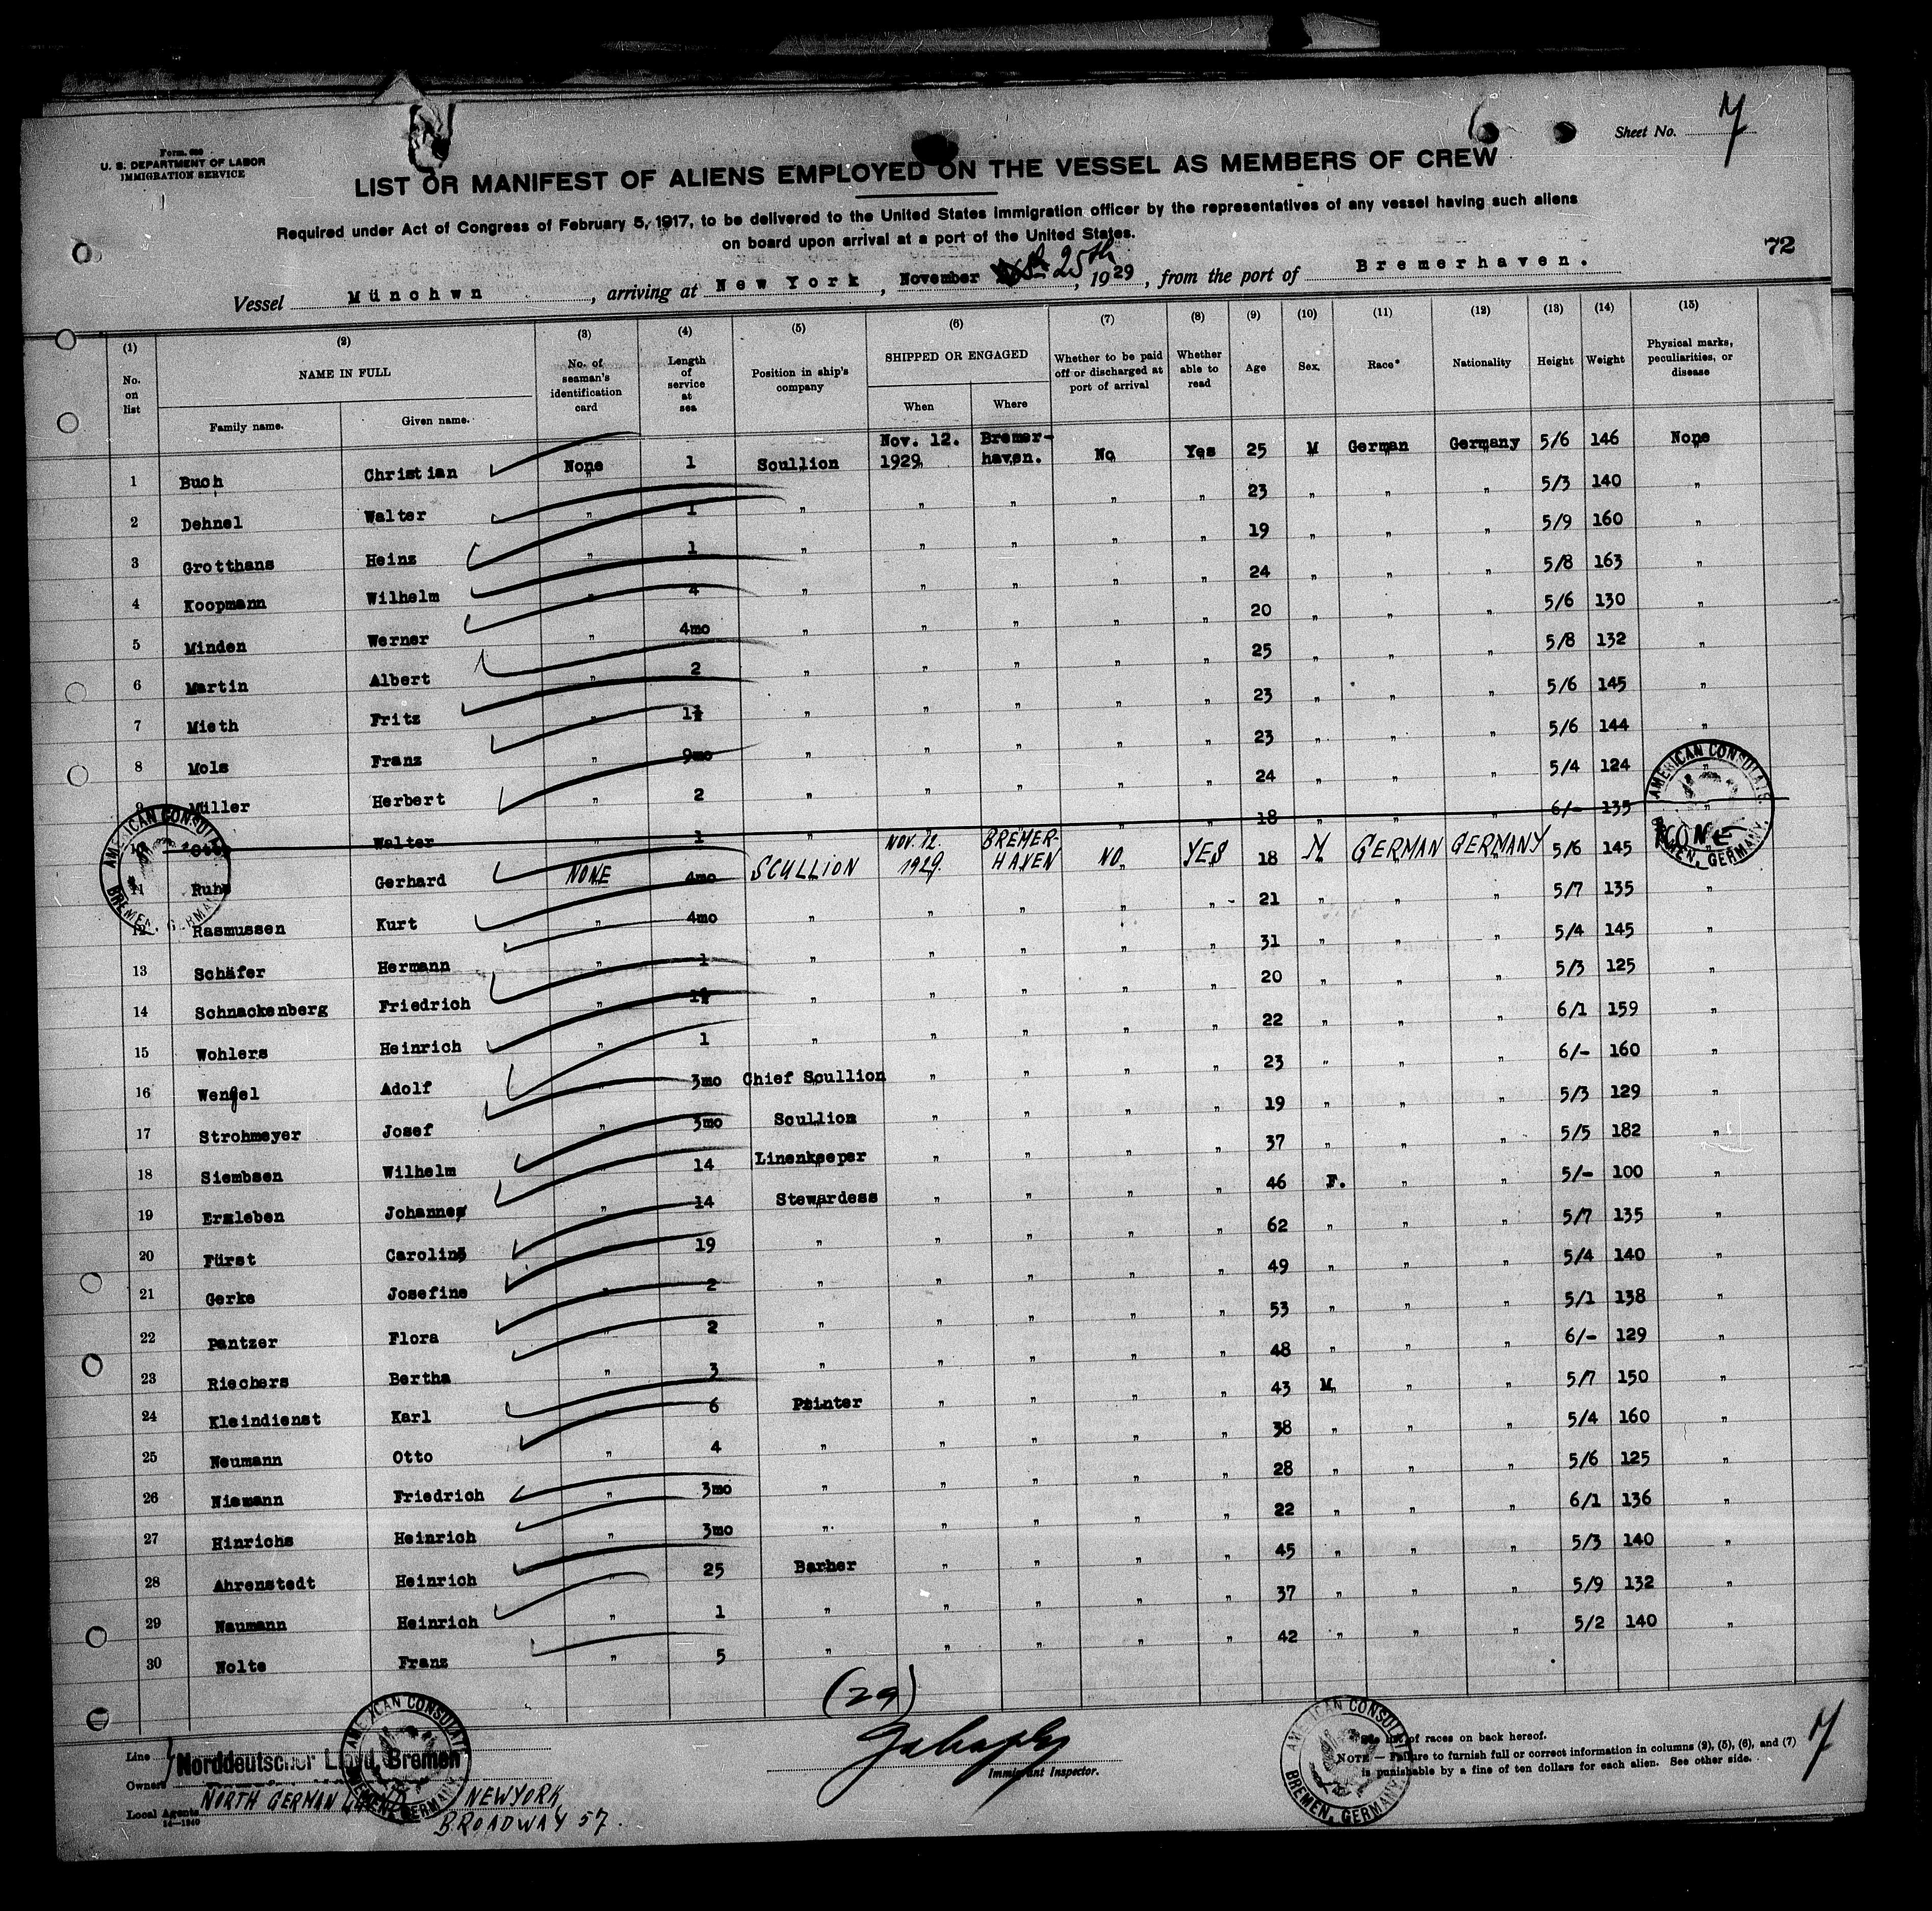 Form 680
U. S. DEPARTMENT OF LABOR
IMMIGRATION SERVICE
Sheet No. 7
LIST OR MANIFEST OF ALIENS EMPLOYED ON THE VESSEL AS MEMBERS OF CREW
Required under Act of Congress of February 5, 1917, to be delivered to the United States immigration officer by the representatives of any vessel having such aliens
on board upon arrival at a port of the United States.
72
Vessel Münchwn, arriving at New York, November 25th, 1929, from the port of Bremerhaven.
(1) (2) (3) (4) (5) (6) (7) (8) (9) (10) (11) (12) (13) (14) (15)
No. on list NAME IN FULL Family name. Given name. No. of seaman's identification card Length of service at sea Position in ship's company SHIPPED OR ENGAGED When Where Whether to be paid off or discharged at port of arrival Whether able to read Age Sex Race* Nationality Height Weight Physical marks, peculiarities, or disease
1 Buch Christian None 1 Scullion Nov. 12. 1929 Bremer-haven. No Yes 25 M German Germany 5/6 146 None
2 Dehnel Walter " 1 " " " " " 23 " " " 5/3 140 "
3 Grotthans Heinz " 1 " " " " " 19 " " " 5/9 160 "
4 Koopmann Wilhelm " 4 " " " " " 24 " " " 5/8 163 "
5 Minden Werner " 4mo " " " " " 20 " " " 5/6 130 "
6 Martin Albert " 2 " " " " " 25 " " " 5/8 132 "
7 Mieth Fritz " 1½ " " " " " 23 " " " 5/6 145 "
8 Mols Franz " 9mo " " " " " 23 " " " 5/6 144 "
9 Müller Herbert " 2 " " " " " 24 " " " 5/4 124 "
10 Walter 1 " " " 18 6/- 135 "
11 Ruhe Gerhard NONE 4mo SCULLION NOV. 12. 1929. BREMER HAVEN NO YES 18 M GERMAN GERMANY 5/6 145 NONE
12 Rasmussen Kurt " 4mo " " " " " 21 " " " 5/7 135 "
13 Schäfer Hermann " 1 " " " " 31 " " " 5/4 145 "
14 Schnackenberg Friedrich " 1½ " " " " " 20 " " " 5/3 125 "
15 Wohlers Heinrich " 1 " " " " " 22 " " " 6/1 159 "
16 Wengel Adolf " 3mo Chief Scullion " " " " 23 " " " 6/- 160 "
17 Strohmeyer Josef " 3mo Scullion " " " " 19 " " " 5/3 129 "
18 Siembsen Wilhelm " 14 Linenkeeper " " " " 37 " " " 5/5 182 "
19 Erxleben Johanne " 14 Stewardess " " " " 46 F. " " 5/- 100 "
20 Fürst Caroline 19 " " " " " 62 " " " 5/7 135 "
21 Gerke Josefine " 2 " " " " " 49 " " " 5/4 140 "
22 Pantzer Flora " 2 " " " " " 53 " " " 5/1 138 "
23 Riechers Bertha " 3 " " " " " 48 " " " 6/- 129 "
24 Kleindienst Karl " 6 Printer " " " " 43 M. " " 5/7 150 "
25 Neumann Otto " 4 " " " " " 38 " " " 5/4 160 "
26 Niemann Friedrich " 3mo " " " " " 28 " " " 5/6 125 "
27 Hinrichs Heinrich " 3mo " " " " " 22 " " " 6/1 136 "
28 Ahrenstedt Heinrich 25 Barber " " " " 45 " " " 5/3 140 "
29 Naumann Heinrich " 1 " " " " " 37 " " " 5/9 132 "
30 Nolte Franz " 5 " " " " " 42 " " " 5/2 140 "
(29)
AMERICAN CONSULATE
BREMEN, GERMANY.
AMERICAN CONSULATE
BREMEN, GERMANY.
AMERICAN CONSULATE
BREMEN, GERMANY.
AMERICAN CONSULATE
BREMEN, GERMANY.
Line
Owners Norddeutscher Lloyd, Bremen
Local Agents NORTH GERMAN LLOYD NEWYORK
BROADWAY 57.
14—1240
Immigrant Inspector.
See list of races on back hereof.
NOTE.—Failure to furnish full or correct information in columns (2), (5), (6), and (7)
is punishable by a fine of ten dollars for each alien. See other side.
7